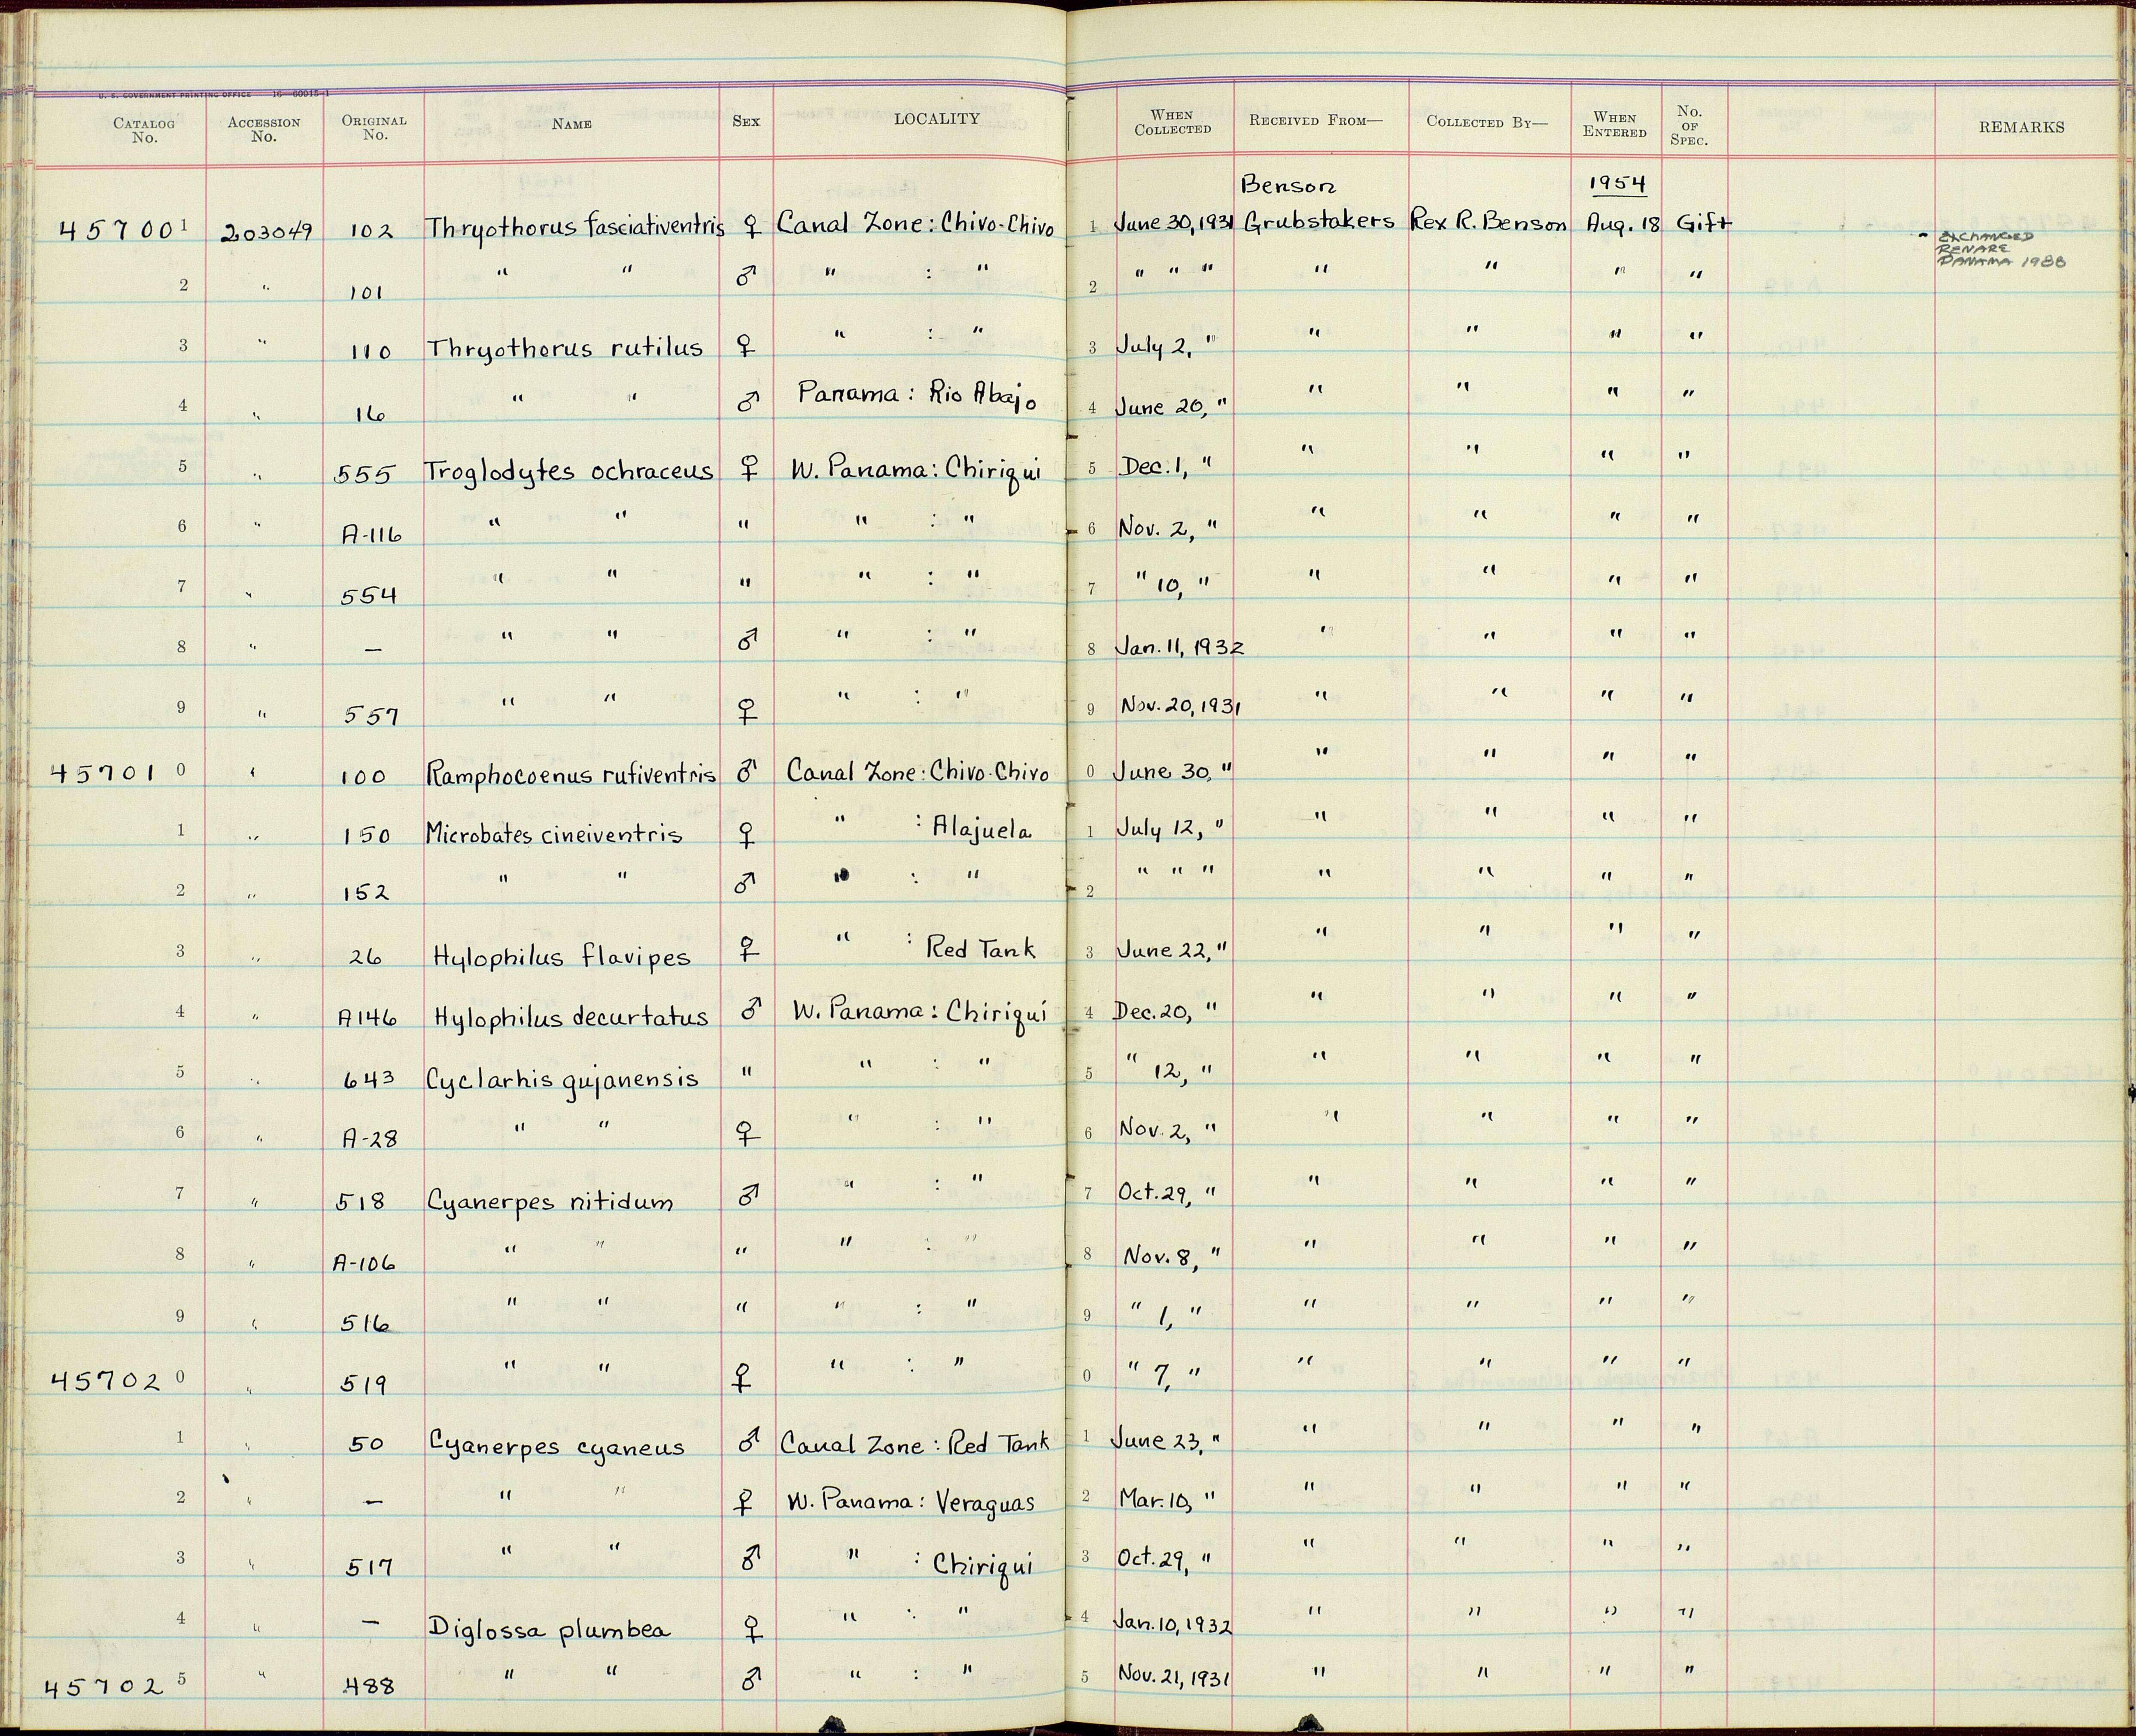 U. S. GOVERNMENT PRINTING OFFICE 16—60015-1
CATALOG No. ACCESSION No. ORIGINAL No. NAME SEX LOCALITY WHEN COLLECTED RECEIVED FROM— COLLECTED BY— WHEN ENTERED No. OF SPEC. REMARKS
Benson 1954
457001 203049 102 Thryothorus fasciativentris ♀ Canal Zone: Chivo-Chivo 1 June 30, 1931 Grubstakers Rex R. Benson Aug. 18 Gift
- EXCHANGED
RENARE
PANAMA 1988
2 " 101 " " ♂ " : " 2 " " " " " " "
3 " 110 Thryothorus rutilus ♀ " : " 3 July 2, " " " " "
4 " 16 " " ♂ Panama: Rio Abajo 4 June 20, " " " " "
5 " 555 Troglodytes ochraceus ♀ W. Panama: Chiriqui 5 Dec. 1, " " " " "
6 " A-116 " " " " : " 6 Nov. 2, " " " " "
7 " 554 " " " " : " 7 " 10, " " " " "
8 " — " " ♂ " : " 8 Jan. 11, 1932 " " " "
9 " 557 " " ♀ " : " 9 Nov. 20, 1931 " " " "
457010 " 100 Ramphocoenus rufiventris ♂ Canal Zone: Chivo-Chivo 0 June 30, " " " " "
1 " 150 Microbates cineiventris ♀ " : Alajuela 1 July 12, " " " " "
2 " 152 " " ♂ " : " 2 " " " " " " "
3 " 26 Hylophilus flavipes ♀ " : Red Tank 3 June 22, " " " " "
4 " A146 Hylophilus decurtatus ♂ W. Panama: Chiriqui 4 Dec. 20, " " " " "
5 " 643 Cyclarhis gujanensis " " : " 5 " 12, " " " " "
6 " A-28 " " ♀ " : " 6 Nov. 2, " " " " "
7 " 518 Cyanerpes nitidum ♂ " : " 7 Oct. 29, " " " " "
8 " A-106 " " " " : " 8 Nov. 8, " " " " "
9 " 516 " " " " : " 9 " 1, " " " " "
457020 " 519 " " ♀ " : " 0 " 7, " " " " "
1 " 50 Cyanerpes cyaneus ♂ Canal Zone: Red Tank 1 June 23, " " " " "
2 " — " " ♀ W. Panama: Veraguas 2 Mar. 10, " " " " "
3 " 517 " " ♂ " : Chiriqui 3 Oct. 29, " " " " "
4 " — Diglossa plumbea ♀ " : " 4 Jan. 10, 1932 " " " "
457025 " 488 " " ♂ " : " 5 Nov. 21, 1931 " " " "